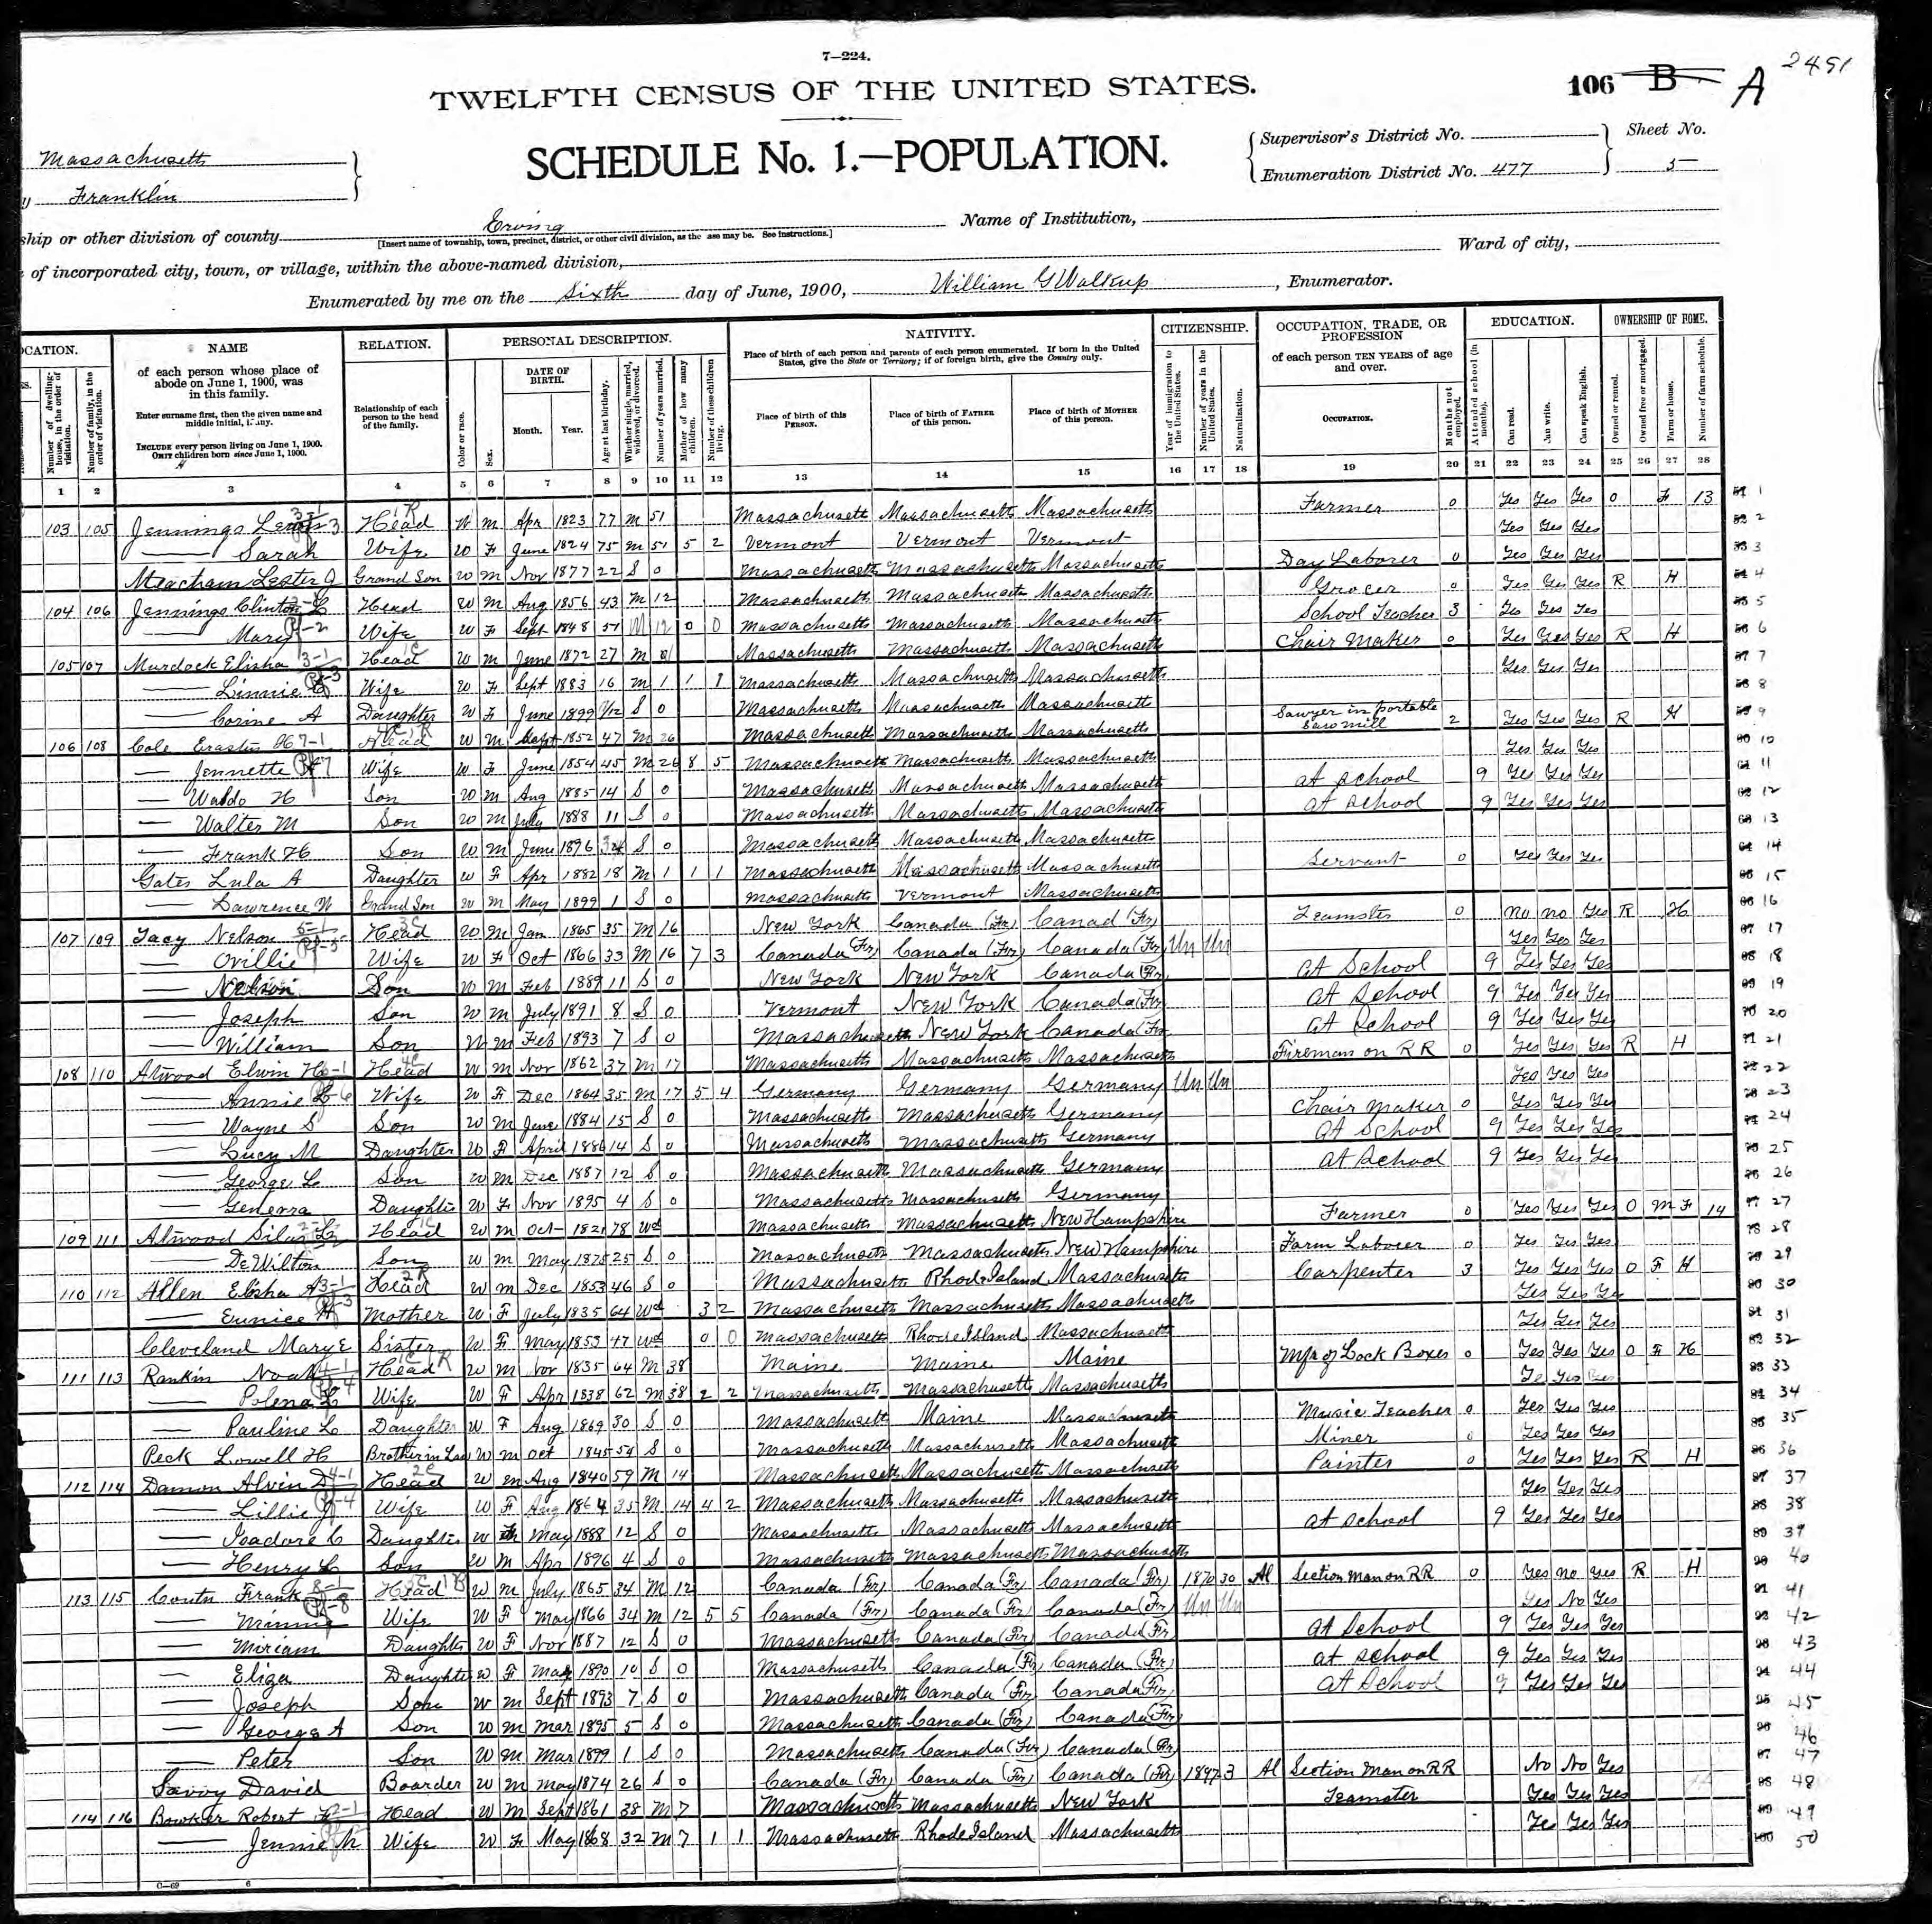 7—224.
TWELFTH CENSUS OF THE UNITED STATES.
106 B A 2491
SCHEDULE No. 1.—POPULATION.
Supervisor's District No. Sheet No.
Enumeration District No. 477 5
Massachusetts
Franklin
ship or other division of county Erving Name of Institution,
[Insert name of township, town, precinct, district, or other civil division, as the case may be. See instructions.]
of incorporated city, town, or village, within the above-named division, Ward of city,
Enumerated by me on the Sixth day of June, 1900, William G Walkup, Enumerator.
CATION. NAME RELATION. PERSONAL DESCRIPTION. NATIVITY. CITIZENSHIP. OCCUPATION, TRADE, OR PROFESSION EDUCATION. OWNERSHIP OF HOME.
of each person whose place of abode on June 1, 1900, was in this family.
Enter surname first, then the given name and middle initial, if any.
INCLUDE every person living on June 1, 1900. OMIT children born since June 1, 1900.
Number of dwelling-house, in the order of visitation.
Number of family, in the order of visitation.
Relationship of each person to the head of the family.
Color or race.
Sex.
DATE OF BIRTH.
Month. Year.
Age at last birthday.
Whether single, married, widowed, or divorced.
Number of years married.
Mother of how many children.
Number of these children living.
Place of birth of each person and parents of each person enumerated. If born in the United States, give the State or Territory; if of foreign birth, give the Country only.
Place of birth of this PERSON.
Place of birth of FATHER of this person.
Place of birth of MOTHER of this person.
Year of immigration to the United States.
Number of years in the United States.
Naturalization.
of each person TEN YEARS of age and over.
OCCUPATION.
Months not employed.
Attended school (in months).
Can read.
Can write.
Can speak English.
Owned or rented.
Owned free or mortgaged.
Farm or house.
Number of farm schedule.
1 2 3 4 5 6 7 8 9 10 11 12 13 14 15 16 17 18 19 20 21 22 23 24 25 26 27 28
103 105 Jennings Head W M Apr 1823 77 M 51 Massachusetts Massachusetts Massachusetts Farmer 0 Yes Yes Yes O F 13 1
— Sarah Wife W F June 1824 75 M 51 5 2 Vermont Vermont Vermont Yes Yes Yes 2
Meacham Lester J Grand Son W M Nov 1877 22 S 0 Massachusetts Massachusetts Massachusetts Day Laborer 0 Yes Yes Yes 3
104 106 Jennings Clinton L Head W M Aug 1856 43 M 12 Massachusetts Massachusetts Massachusetts Grocer 0 Yes Yes Yes R H 4
— Mary Wife W F Sept 1848 51 M 12 0 0 Massachusetts Massachusetts Massachusetts School Teacher 3 Yes Yes Yes 5
105 107 Murdock Elisha Head W M June 1872 27 M Massachusetts Massachusetts Massachusetts Chair Maker 0 Yes Yes Yes R H 6
— Linnie Wife W F Sept 1883 16 M 1 1 1 Massachusetts Massachusetts Massachusetts Yes Yes Yes 7
— Corine A Daughter W F June 1899 S 0 Massachusetts Massachusetts Massachusetts 8
106 108 Cole Erastus H Head W M Sept 1852 47 M 26 Massachusetts Massachusetts Massachusetts Sawyer in portable Saw mill 2 Yes Yes Yes R H 9
— Jennette Wife W F June 1854 45 M 26 8 5 Massachusetts Massachusetts Massachusetts Yes Yes Yes 10
— Waldo H Son W M Aug 1885 14 S 0 Massachusetts Massachusetts Massachusetts at School 9 Yes Yes Yes 11
— Walter M Son W M July 1888 11 S 0 Massachusetts Massachusetts Massachusetts at School 9 Yes Yes Yes 12
— Frank H Son W M June 1896 3 S 0 Massachusetts Massachusetts Massachusetts 13
Gates Lula A Daughter W F Apr 1882 18 M 1 1 1 Massachusetts Massachusetts Massachusetts Servant 0 Yes Yes Yes 14
— Lawrence W Grand Son W M May 1899 1 S 0 Massachusetts Vermont Massachusetts 15
107 109 Tacy Nelson Head W M Jan 1865 35 M 16 New York Canada (Fr) Canad (Fr) Teamster 0 no no Yes R H 16
— Orillie Wife W F Oct 1866 33 M 16 7 3 Canada (Fr) Canada (Fr) Canada (Fr) Un Un Yes Yes Yes 17
— Nelson Son W M Feb 1889 11 S 0 New York New York Canada (Fr) at School 9 Yes Yes Yes 18
— Joseph Son W M July 1891 8 S 0 Vermont New York Canada (Fr) at School 9 Yes Yes Yes 19
— William Son W M Feb 1893 7 S 0 Massachusetts New York Canada (Fr) at School 9 Yes Yes Yes 20
108 110 Atwood Elwin H Head W M Nov 1862 37 M 17 Massachusetts Massachusetts Massachusetts Fireman on RR 0 Yes Yes Yes R H 21
— Annie L Wife W F Dec 1864 35 M 17 5 4 Germany Germany Germany Un Un Yes Yes Yes 22
— Wayne S Son W M June 1884 15 S 0 Massachusetts Massachusetts Germany Chair Maker 0 Yes Yes Yes 23
— Lucy M Daughter W F April 1886 14 S 0 Massachusetts Massachusetts Germany at School 9 Yes Yes Yes 24
— George L Son W M Dec 1887 12 S 0 Massachusetts Massachusetts Germany at School 9 Yes Yes Yes 25
— Genevra Daughter W F Nov 1895 4 S 0 Massachusetts Massachusetts Germany 26
109 111 Atwood Silas L Head W M Oct 1821 78 Wd Massachusetts Massachusetts New Hampshire Farmer 0 Yes Yes Yes O M F 14 27
— DeWilton Son W M May 1875 25 S 0 Massachusetts Massachusetts New Hampshire Farm Laborer 0 Yes Yes Yes 28
110 112 Allen Elisha A Head W M Dec 1853 46 S 0 Massachusetts Rhode Island Massachusetts Carpenter 3 Yes Yes Yes O F H 29
— Eunice H Mother W F July 1835 64 Wd 3 2 Massachusetts Massachusetts Massachusetts Yes Yes Yes 30
Cleveland Mary E Sister W F May 1853 47 Wd 0 0 Massachusetts Rhode Island Massachusetts Yes Yes Yes 31
111 113 Rankin Noah Head W M Nov 1835 64 M 38 Maine Maine Maine Mfr of Lock Boxes 0 Yes Yes Yes O F H 32
— Polena L Wife W F Apr 1838 62 M 38 2 2 Massachusetts Massachusetts Massachusetts Yes Yes Yes 33
— Pauline L Daughter W F Aug 1869 30 S 0 Massachusetts Maine Massachusetts Music Teacher 0 Yes Yes Yes 34
Peck Lowell H Brother in Law W M Oct 1845 54 S 0 Massachusetts Massachusetts Massachusetts Miner 0 Yes Yes Yes 35
112 114 Damon Alvin D Head W M Aug 1840 59 M 14 Massachusetts Massachusetts Massachusetts Painter 0 Yes Yes Yes R H 36
— Lillie Wife W F Aug 1864 35 M 14 4 2 Massachusetts Massachusetts Massachusetts Yes Yes Yes 37
— Isadore C Daughter W F May 1888 12 S 0 Massachusetts Massachusetts Massachusetts at School 9 Yes Yes Yes 38
— Henry L Son W M Apr 1896 4 S 0 Massachusetts Massachusetts Massachusetts 39
113 115 Coutu Frank Head W M July 1865 34 M 12 Canada (Fr) Canada (Fr) Canada (Fr) 1870 30 Al Section Man on RR 0 Yes no Yes R H 40
— Minnie Wife W F May 1866 34 M 12 5 5 Canada (Fr) Canada (Fr) Canada (Fr) Un Un Yes No Yes 41
— Miriam Daughter W F Nov 1887 12 S 0 Massachusetts Canada (Fr) Canada (Fr) at School 9 Yes Yes Yes 42
— Eliza Daughter W F May 1890 10 S 0 Massachusetts Canada (Fr) Canada (Fr) at school 9 Yes Yes Yes 43
— Joseph Son W M Sept 1893 7 S 0 Massachusetts Canada (Fr) Canada (Fr) at School 9 Yes Yes Yes 44
— George A Son W M Mar 1895 5 S 0 Massachusetts Canada (Fr) Canada (Fr) 45
— Peter Son W M Mar 1899 1 S 0 Massachusetts Canada (Fr) Canada (Fr) 46
Savoy David Boarder W M May 1874 26 S 0 Canada (Fr) Canada (Fr) Canada (Fr) 1897 3 Al Section Man on RR No No Yes 47
114 116 Bowker Robert Head W M Sept 1861 38 M 7 Massachusetts Massachusetts New York Teamster Yes Yes Yes 48
— Jennie M Wife W F May 1868 32 M 7 1 1 Massachusetts Rhode Island Massachusetts Yes Yes Yes 49
50
C—69 6